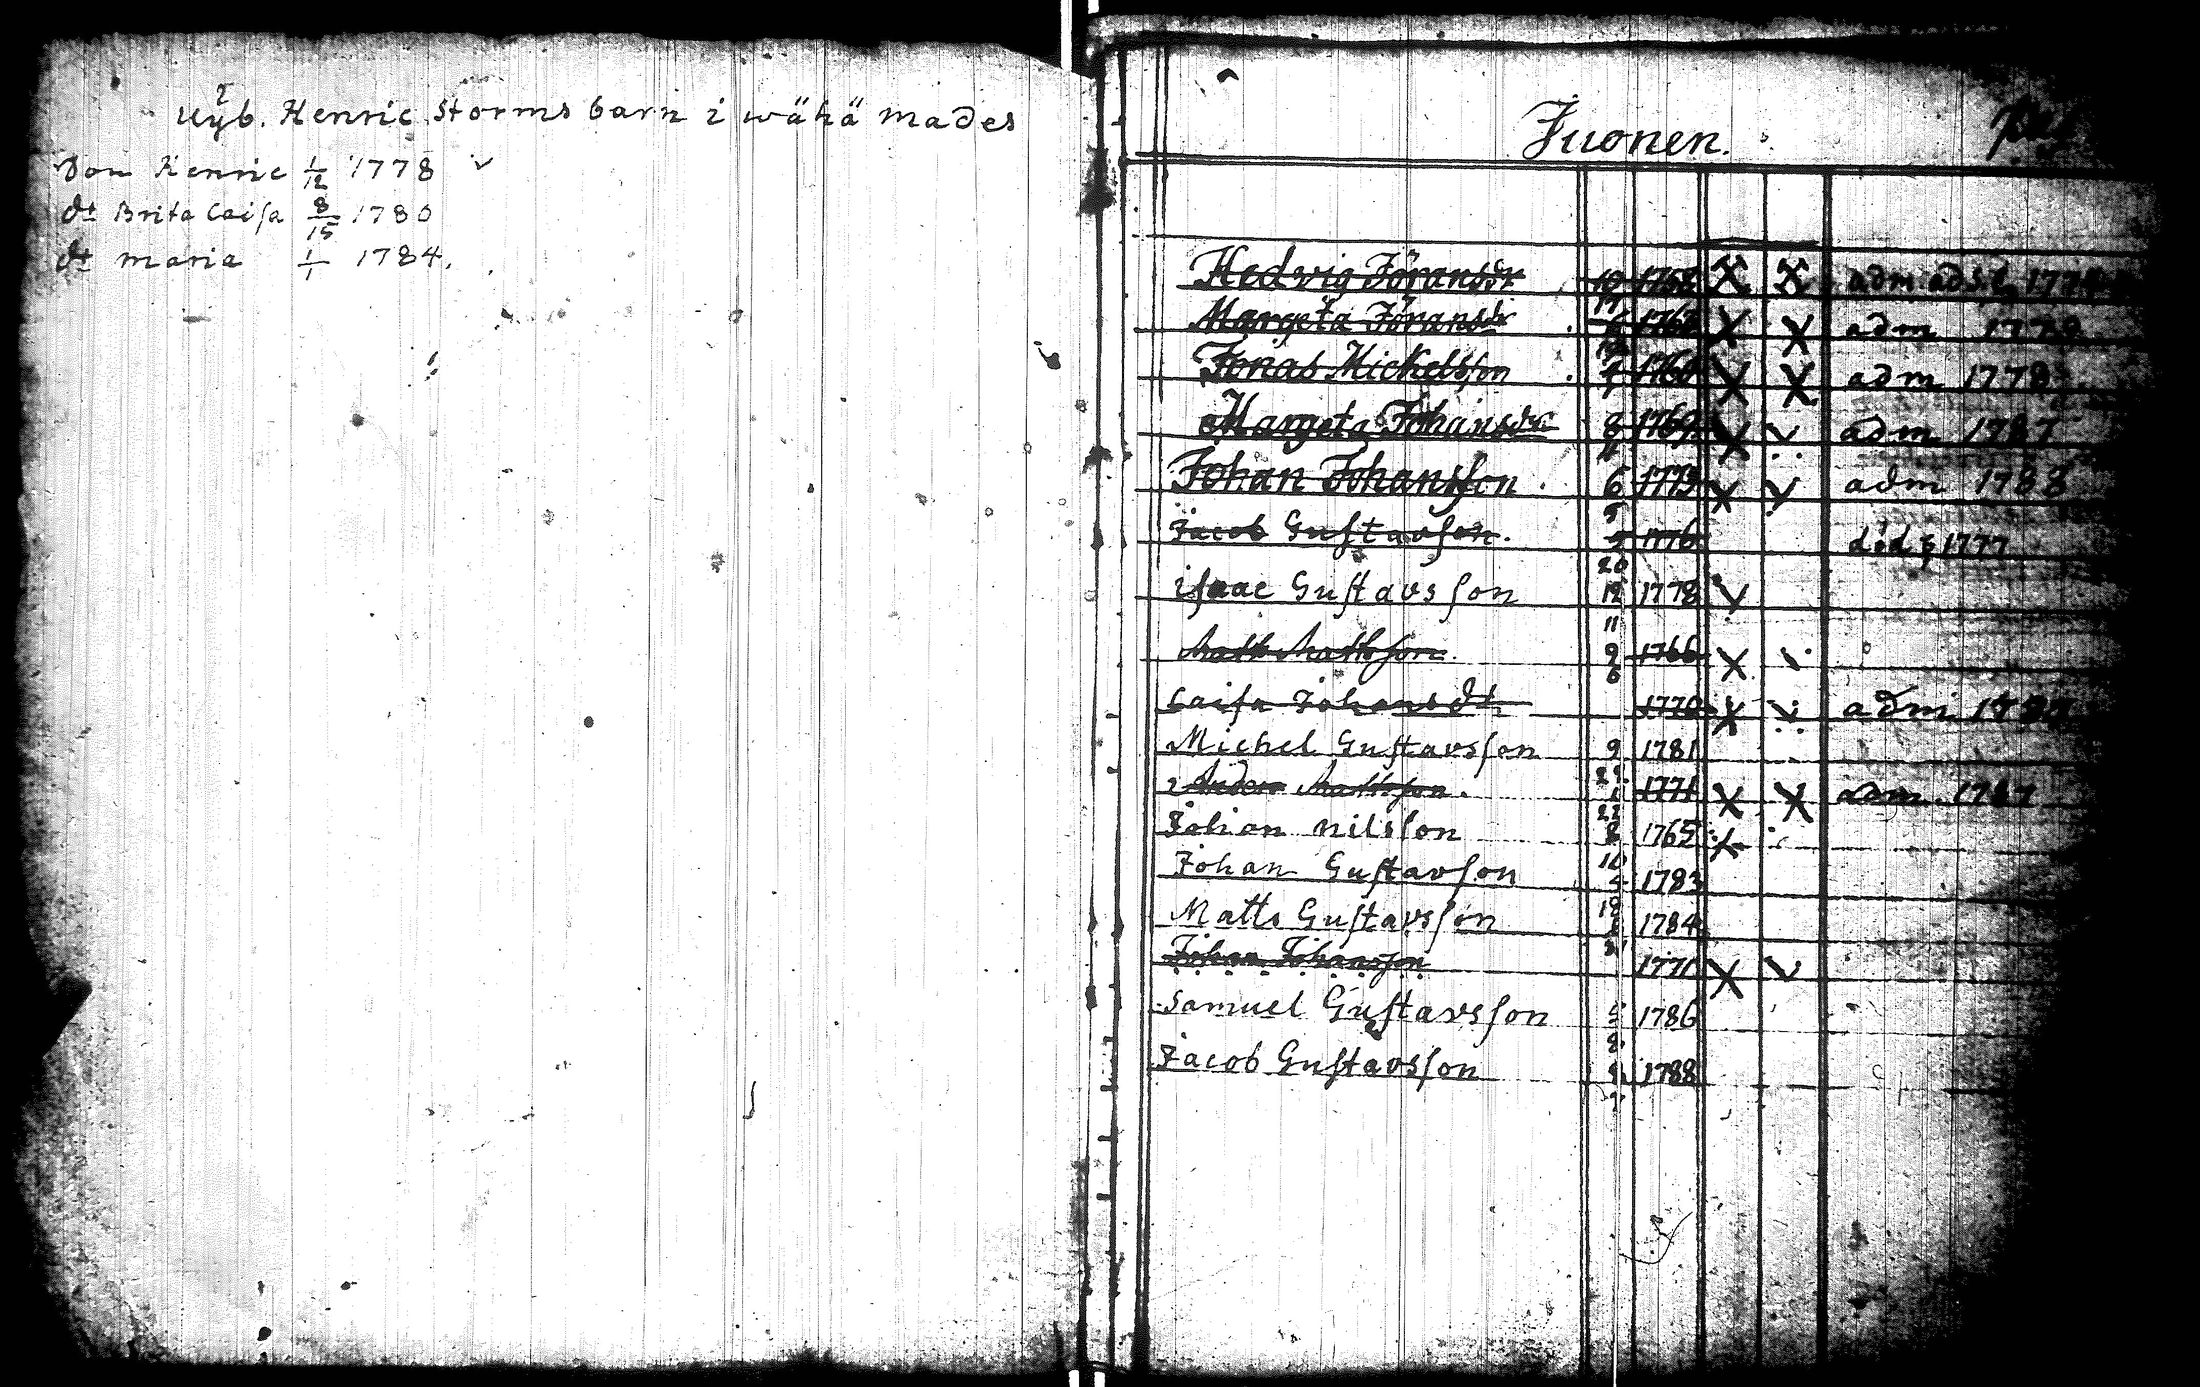 Uÿb. Henric Storms barn i wähä mades
Son Henric 1/12 1778
dt Brita Caisa 8/15 1780
dt maria 1/1 1784.
Juonen.
Hedwig Jöransdr 10 1768 adm
17
Margeta Jöransdr adm
Jonas Mickelsson adm 1778
Margeta Johansdr 8 1769 adm 1787
Johan Johansson 6 1773 adm 1788
5
Jacob Gustavson. 1776 död 1777
20
isaac Gustavsson 12 1778
11
Matts Mattsson. 9 1766
6
Caisa Johansdt 1770 adm
Michel Gustavsson 9 1781
Anders Mattsson. 1771 adm. 1787
22
Johan nilsson 8 1765
10
Johan Gustavson 1783
Matts Gustavsson 1784
Johan Johansson 1771
Samuel Gustavsson 1786
8
Jacob Gustavsson 1788